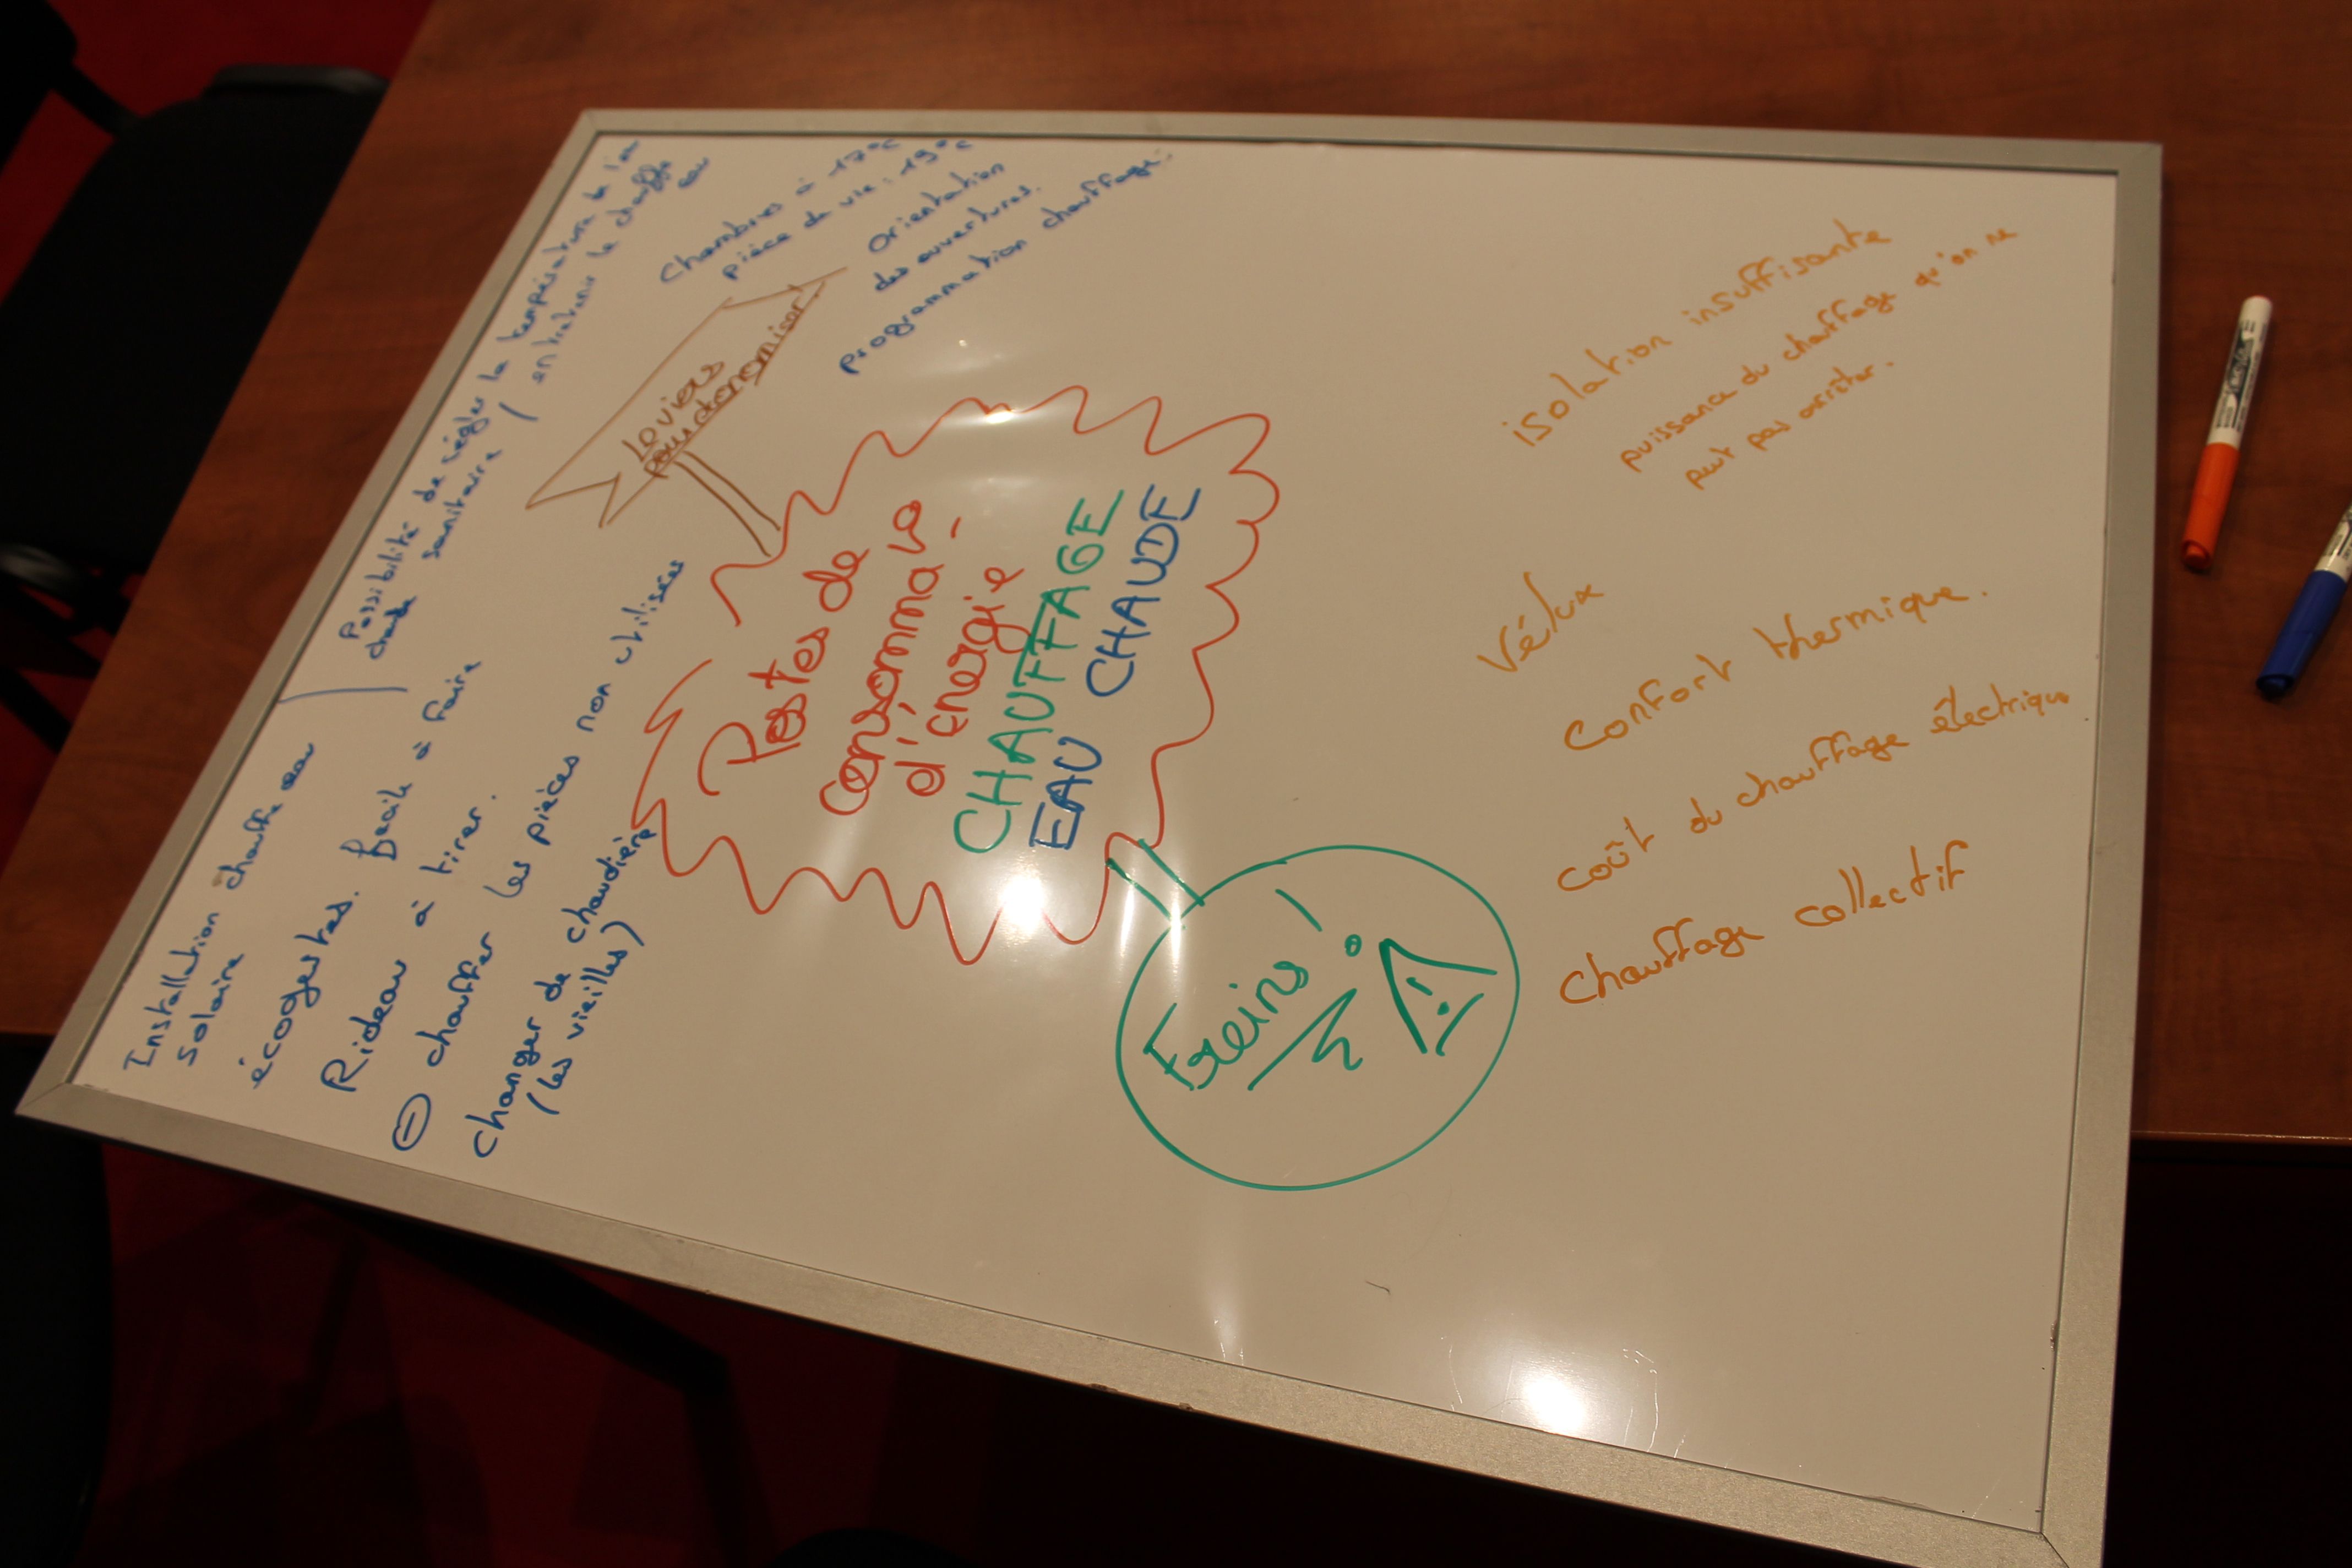 Possibilité de régler la température de l'eau
chaude sanitaire / entretenir le chauffe
eau
Chambres à 17°C
pièce de vie : 19°C
Orientation
des ouvertures.
programmation chauffage.
Leviers
pour économiser
Installation chauffe eau
solaire
écogestes. facile à faire
Rideau à tirer.
⊖ chauffer les pièces non utilisées
changer de chaudière
(les vieilles)
Postes de
consommat°
d'énergie -
CHAUFFAGE
EAU CHAUDE
Freins
isolation insuffisante
puissance du chauffage qu'on ne
peut pas arrêter.
Vélux
Confort thermique.
coût du chauffage électrique
chauffage collectif